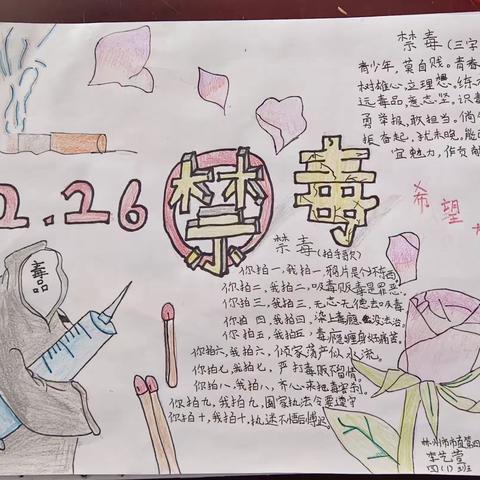 禁毒(三字
青少年,莫自贱。青春
树雄心,立理想,练
远毒品,意志坚,识
勇举报,敢担当。倘
振奋起,犹未晚,能
宜勉力,作贡献
2.26
禁毒
希望
毒品
禁毒(拍手歌)
你拍一,我拍一,鸦片是个坏东西
你拍二,我拍二,吸毒贩毒是罪恶
你拍三,我拍三,无志无德去吸毒
你拍四,我拍四,染上毒瘾没法治。
你拍五,我拍五,毒瘾缠身好痛苦。
你拍六,我拍六,倾家荡产似水流。
你拍七,我拍七,严打毒贩不留情。
你拍八,我拍八,齐心来把毒害刹。
你拍九,我拍九,国家执法令要遵守
你拍十,我拍十,执迷不悟后悔迟
李艺萱
四(1)班